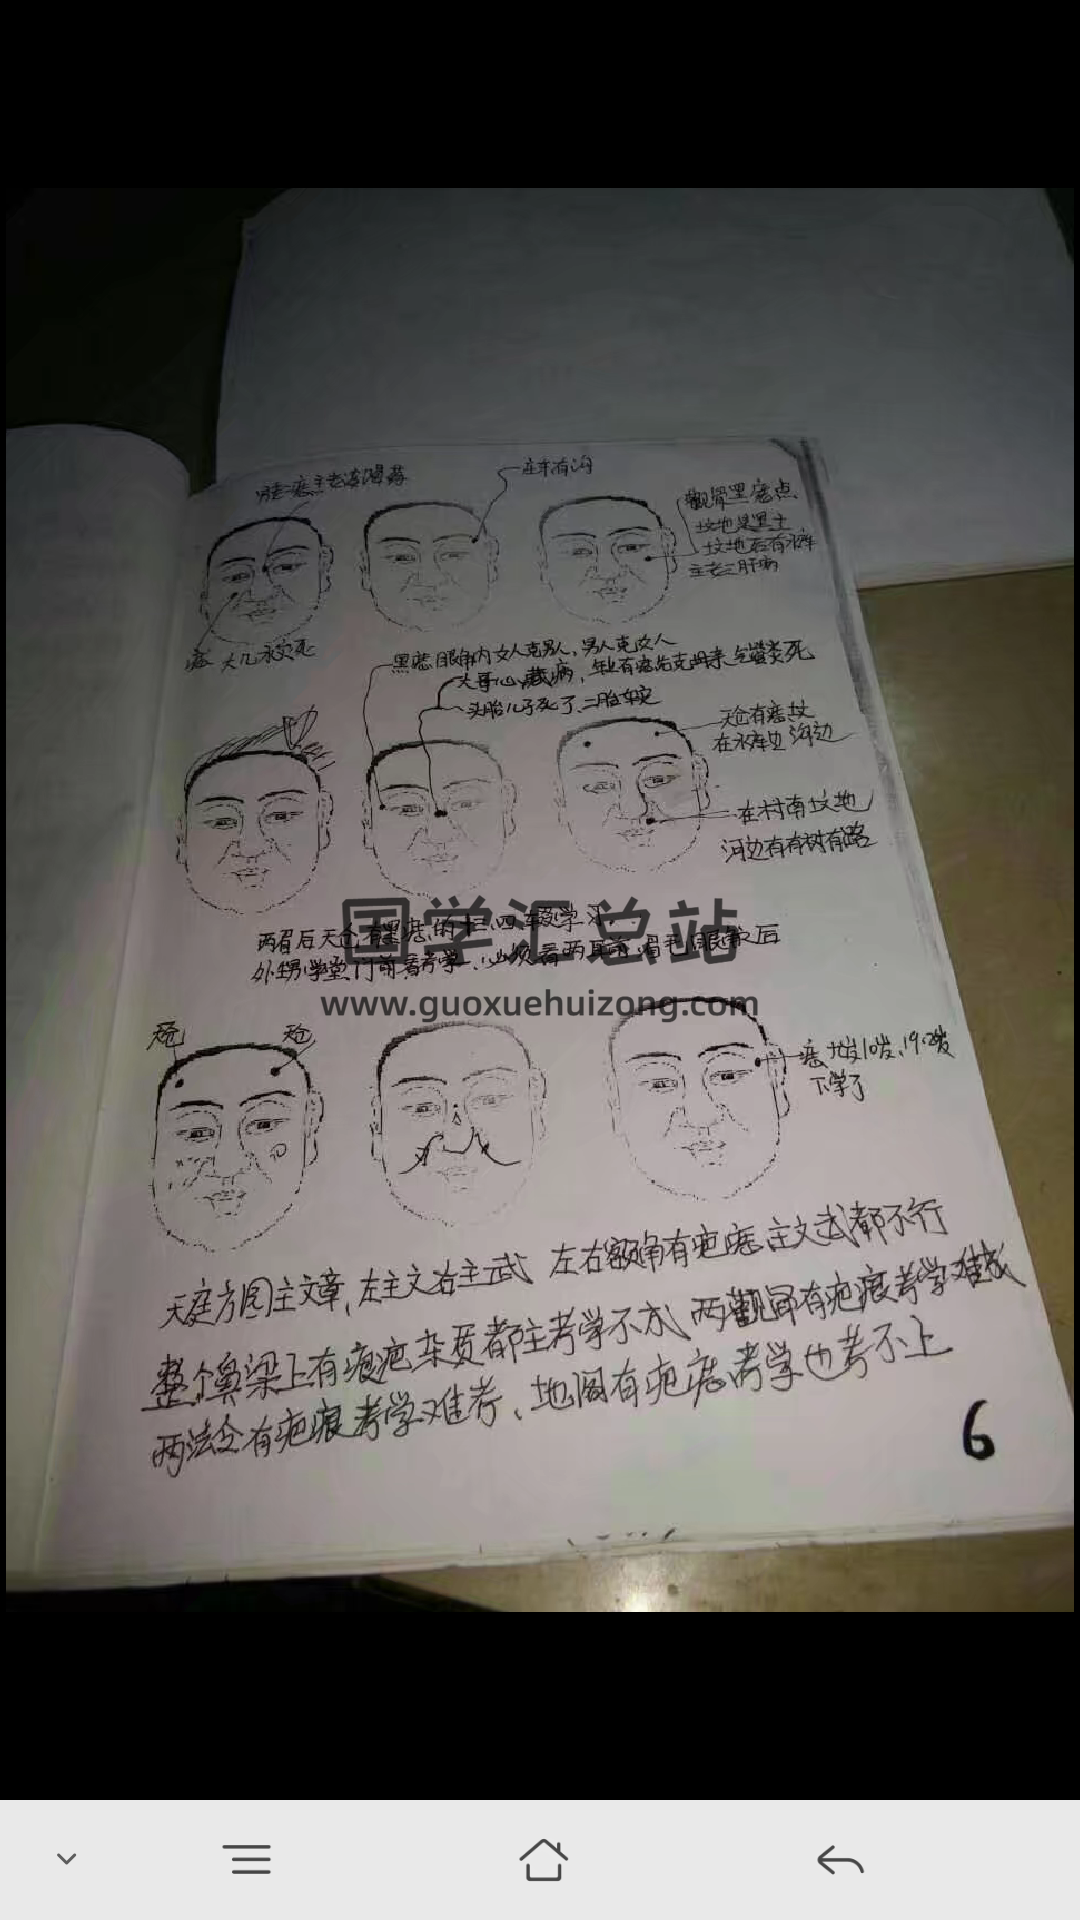 庄东有沟
颧骨黑痣点
坟地是黑土
坟地后有水库
主老三肝病
痣 大儿子 死
黑痣眼角内女人克男人，男人克女人
大哥心臓病，年上有痣先克 死
头胎儿子死了、二胎
天仓有痣坟
在水库边 沟边
在村南坟地
河边有有树有路
两眉后天仓有黑痣的十三、四 学习
外甥学堂、门前看考学、必须看两耳前、眉毛 眼 后
天仓
天仓
痣 岁10岁、19.2岁
下学了
天庭方园主文章，左主文右主武 左右额角有疤痣主文武都不行
整个鼻梁上有痕疤杂质都主考学不成 两颧骨有疤痕考学难成
两法令有疤痕考学难考、地阁有疤痣考学也考不上
6
国学汇总站
www.guoxuehuizong.com